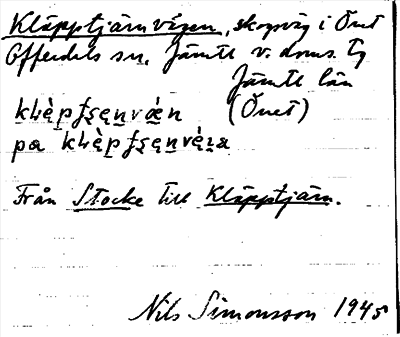 Kläpptjärnvägen, skogsväg i Önet
Offerdals sn. Jämtl v. doms. tg
Jämtl län
(Önet)
pa
Från Stocke till Kläpptjärn.
Nils Simonsson 1945